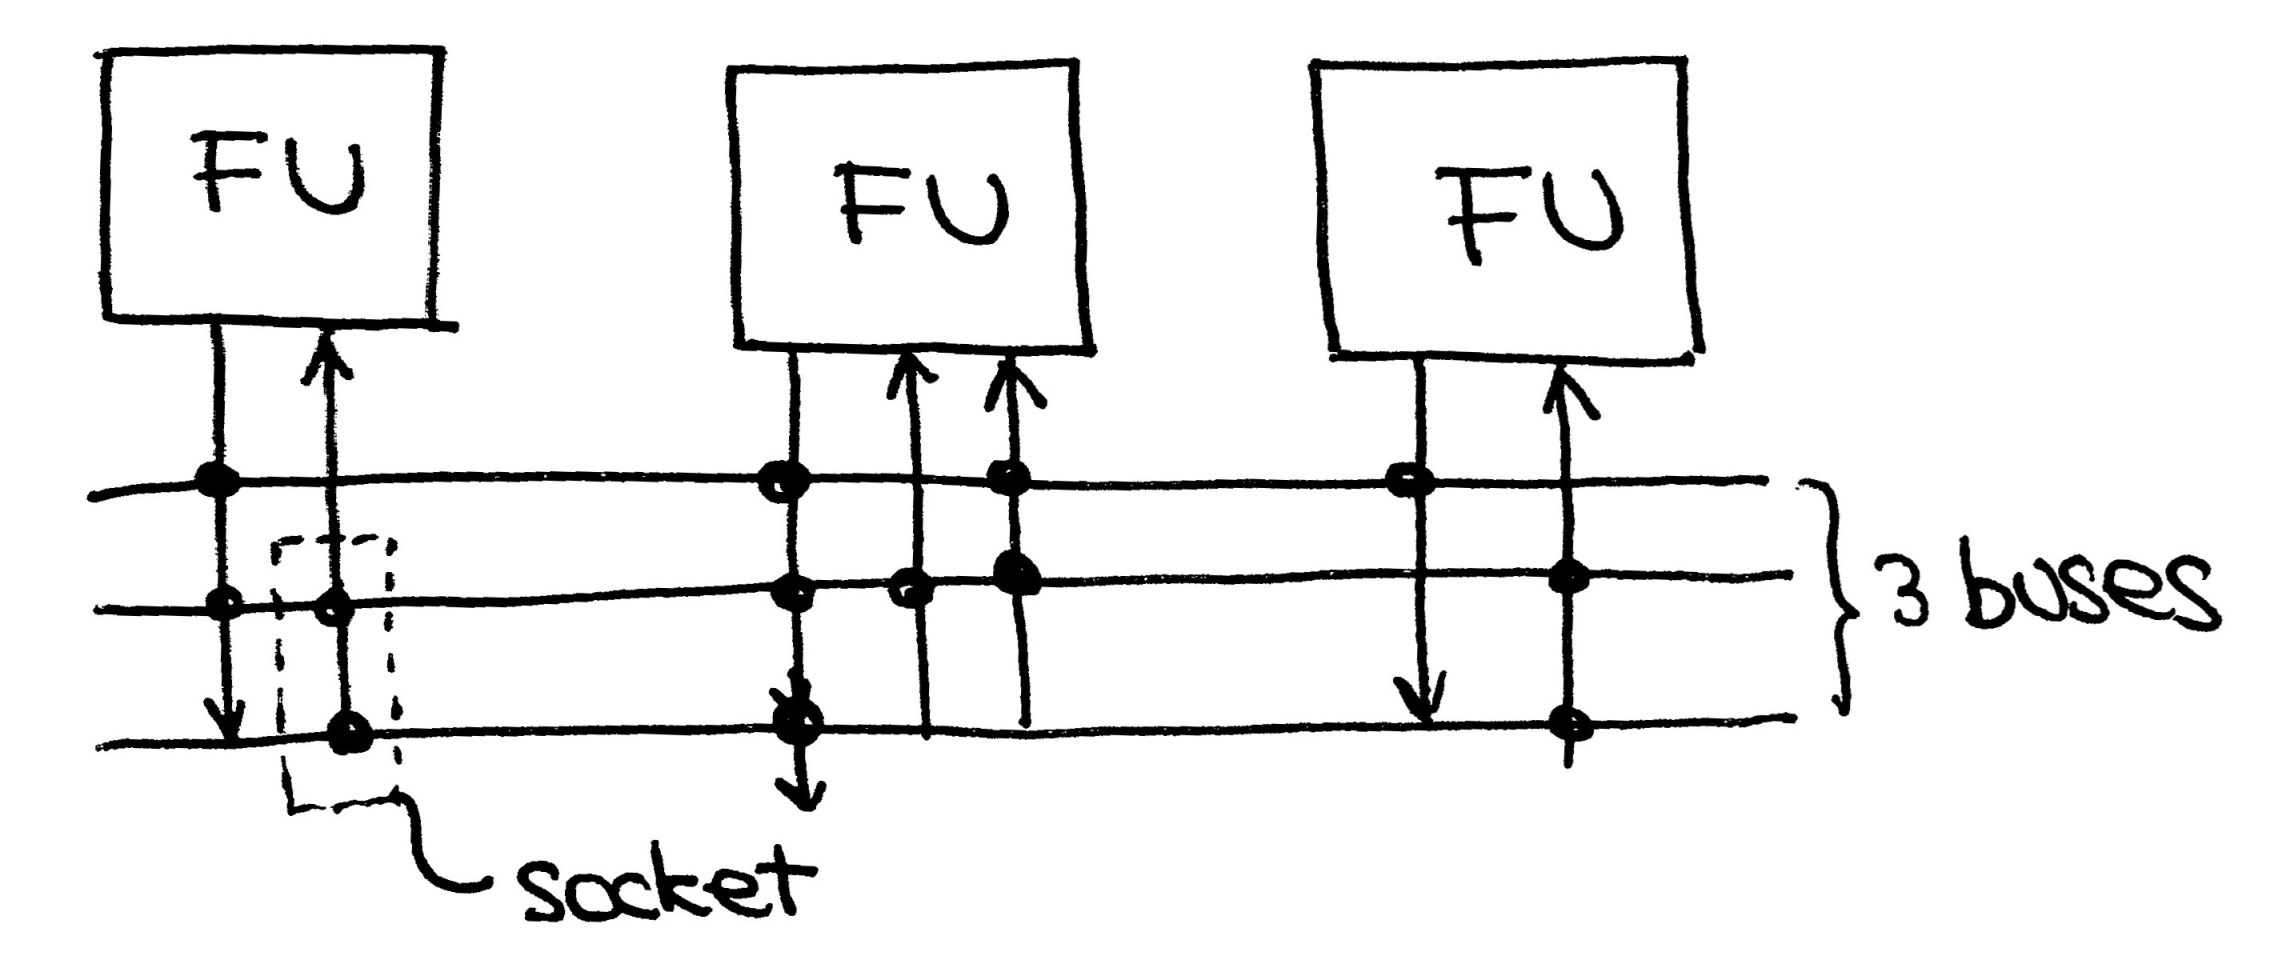 FU
FU
FU
3 buses
socket